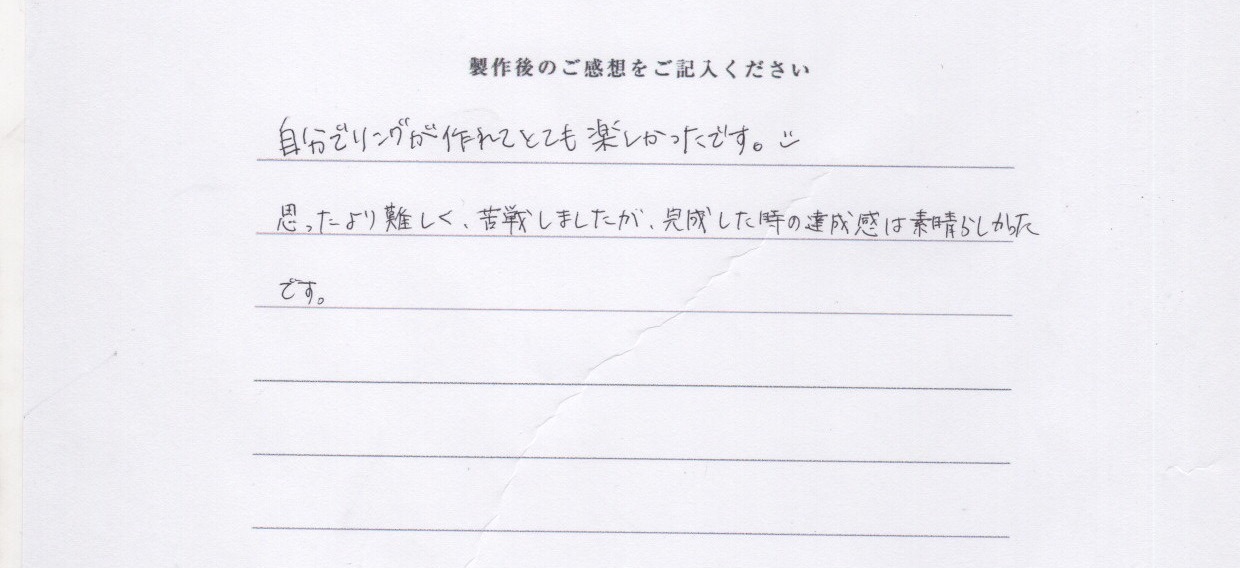 製作後のご感想をご記入ください
自分でリングが作れてとても楽しかったです。
思ったより難しく、苦戦しましたが、完成した時の達成感は素晴らしかった
です。